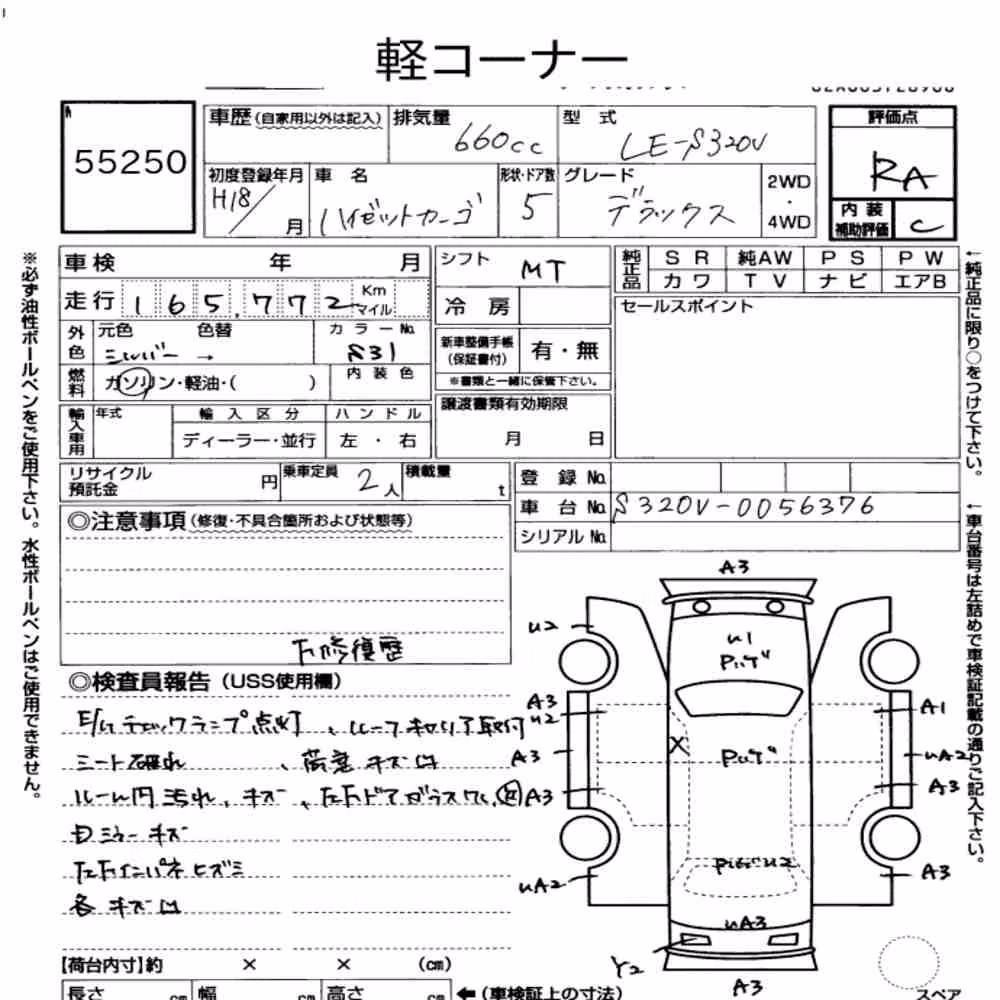 軽コーナー
55250
車歴(自家用以外は記入)
排気量
660cc
型 式
LE-S320V
評価点
RA
初度登録年月
H18/
月
車 名
ハイゼットカーゴ
形状・ドア数
5
グレード
デラックス
2WD
・
4WD
内 装
補助評価
C
車検 年 月
走行 165,772 Km
マイル
シフト
MT
冷 房
純正品
S R
純AW
P S
P W
カワ
T V
ナビ
エアB
セールスポイント
外色
元色
色替
シルバー →
カラーNo.
S31
燃料
ガソリン・軽油・( )
内装色
新車整備手帳
(保証書付)
有・無
※書類と一緒に保管下さい。
輸入車用
年式
輸入区分
ハンドル
ディーラー・並行
左 ・ 右
譲渡書類有効期限
月 日
リサイクル
預託金
円
乗車定員
2人
積載量
t
登 録 No.
車 台 No.
S320V-0056376
シリアル No.
◎注意事項(修復・不具合箇所および状態等)
◎検査員報告(USS使用欄)
E/Gチェックランプ点灯、
シート破れ、荷室キズ凹
ルーム内汚れ、キズ、
ミラーキズ
各キズ凹
A3
U2
U1
A3
U2
A1
A3
UA2
A3
A3
X
UA2
A3
UA3
Y2
A3
【荷台内寸】約 × × (cm)
長さ cm
幅 cm
高さ cm
←(車検証上の寸法)
スペア
※必ず油性ボールペンをご使用下さい。水性ボールペンはご使用できません。
←純正品に限り○をつけて下さい。
←車台番号は左詰めで車検証記載の通りご記入下さい。